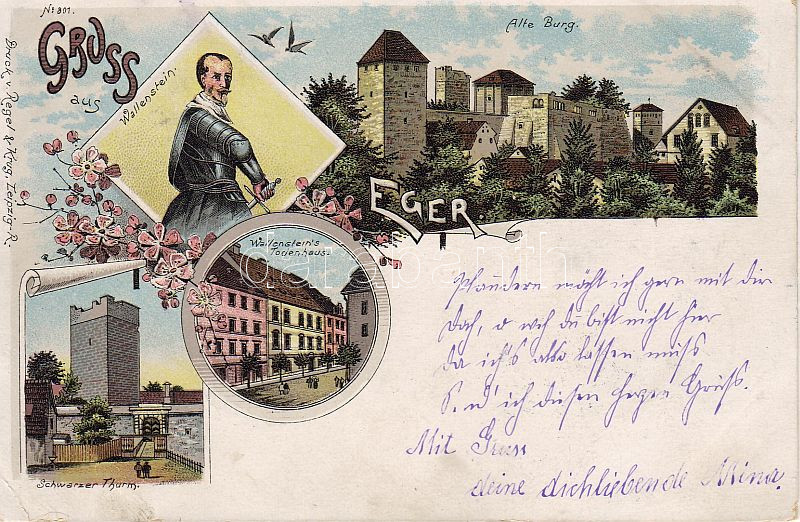 No. 801.
GRUSS
aus
Wallenstein.
Alte Burg.
Druck v. Regel & Krug, Leipzig-R.
EGER.
Wallenstein's
Todenhaus.
Schwarzer Thurm.
darabanth
Plaudern möcht ich gern mit dir
Doch, o weh du bist nicht hier
da ich's also lassen muss
S. n' ich diesen herzen Gruss.
Mit Gruss
deine dichliebende Mina.